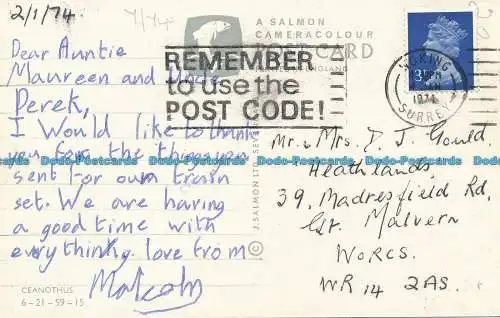 2/1/74.
Dear Auntie
Maureen and Uncle
Derek,
I Would like to thank
you for the things you
sent for our train
set. We are having
a good time with
everything. love from
Malcolm
CEANOTHUS
6-21-59-15
A SALMON
CAMERACOLOUR
POST CARD
REMEMBER
to use the
POST CODE!
WOKING
PM
JAN
1974
SURREY
© J. SALMON LTD. SEVEN
Mr. & Mrs. D J Gould,
Heathlands,
39, Madresfield Rd,
Gt. Malvern
WORCS.
WR14 2AS.
Dodo-Postcards Dodo-Postcards Dodo-Postcards Dodo-Postcards Dodo-Postcards